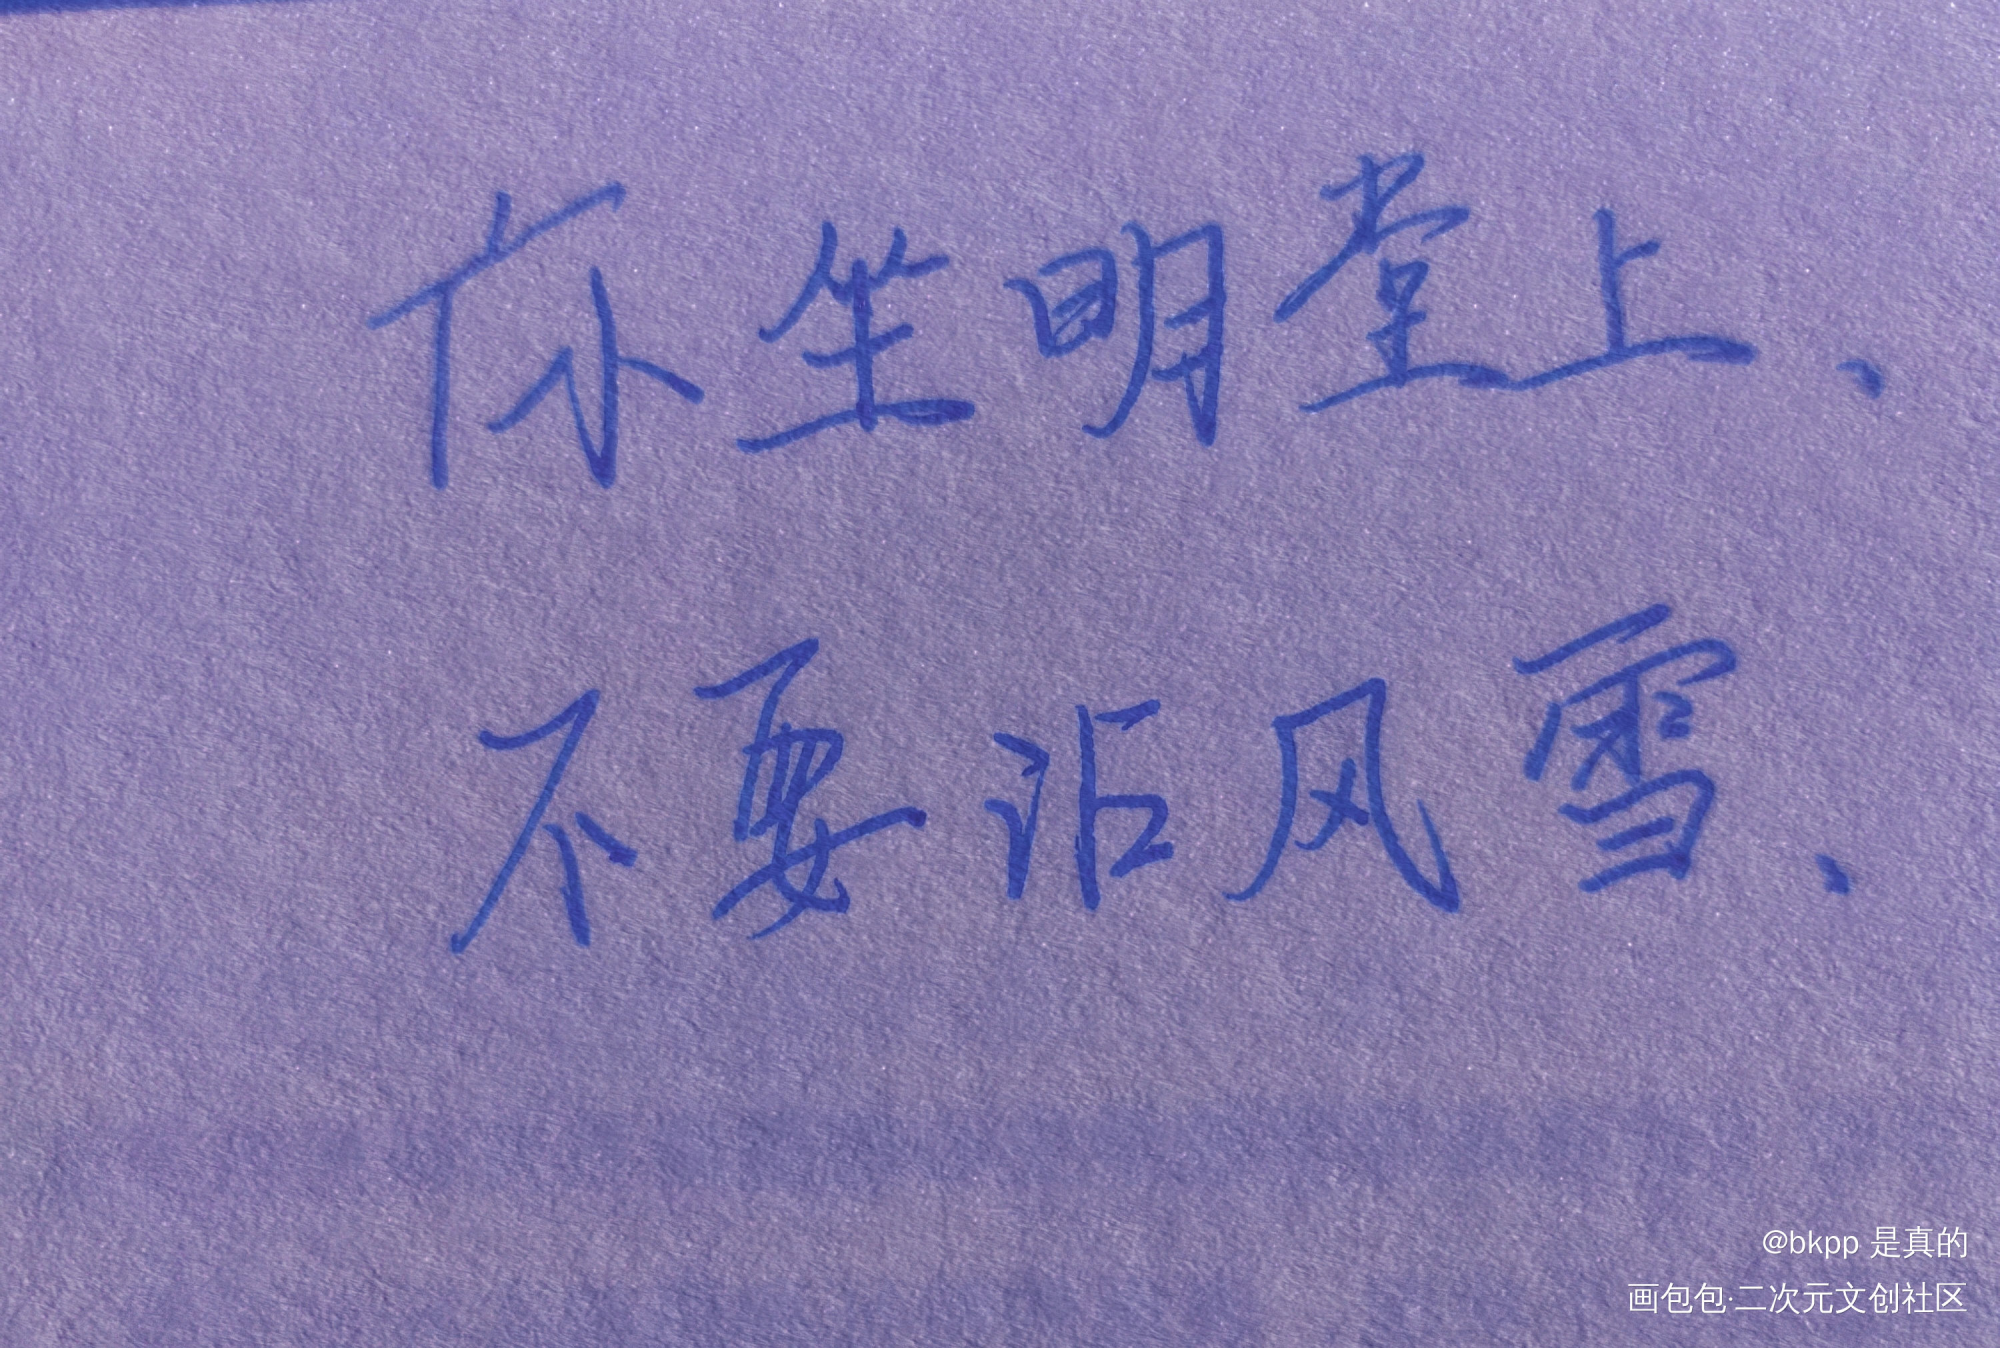 你坐明堂上、
不要沾风雪、
@bkpp 是真的
画包包·二次元文创社区